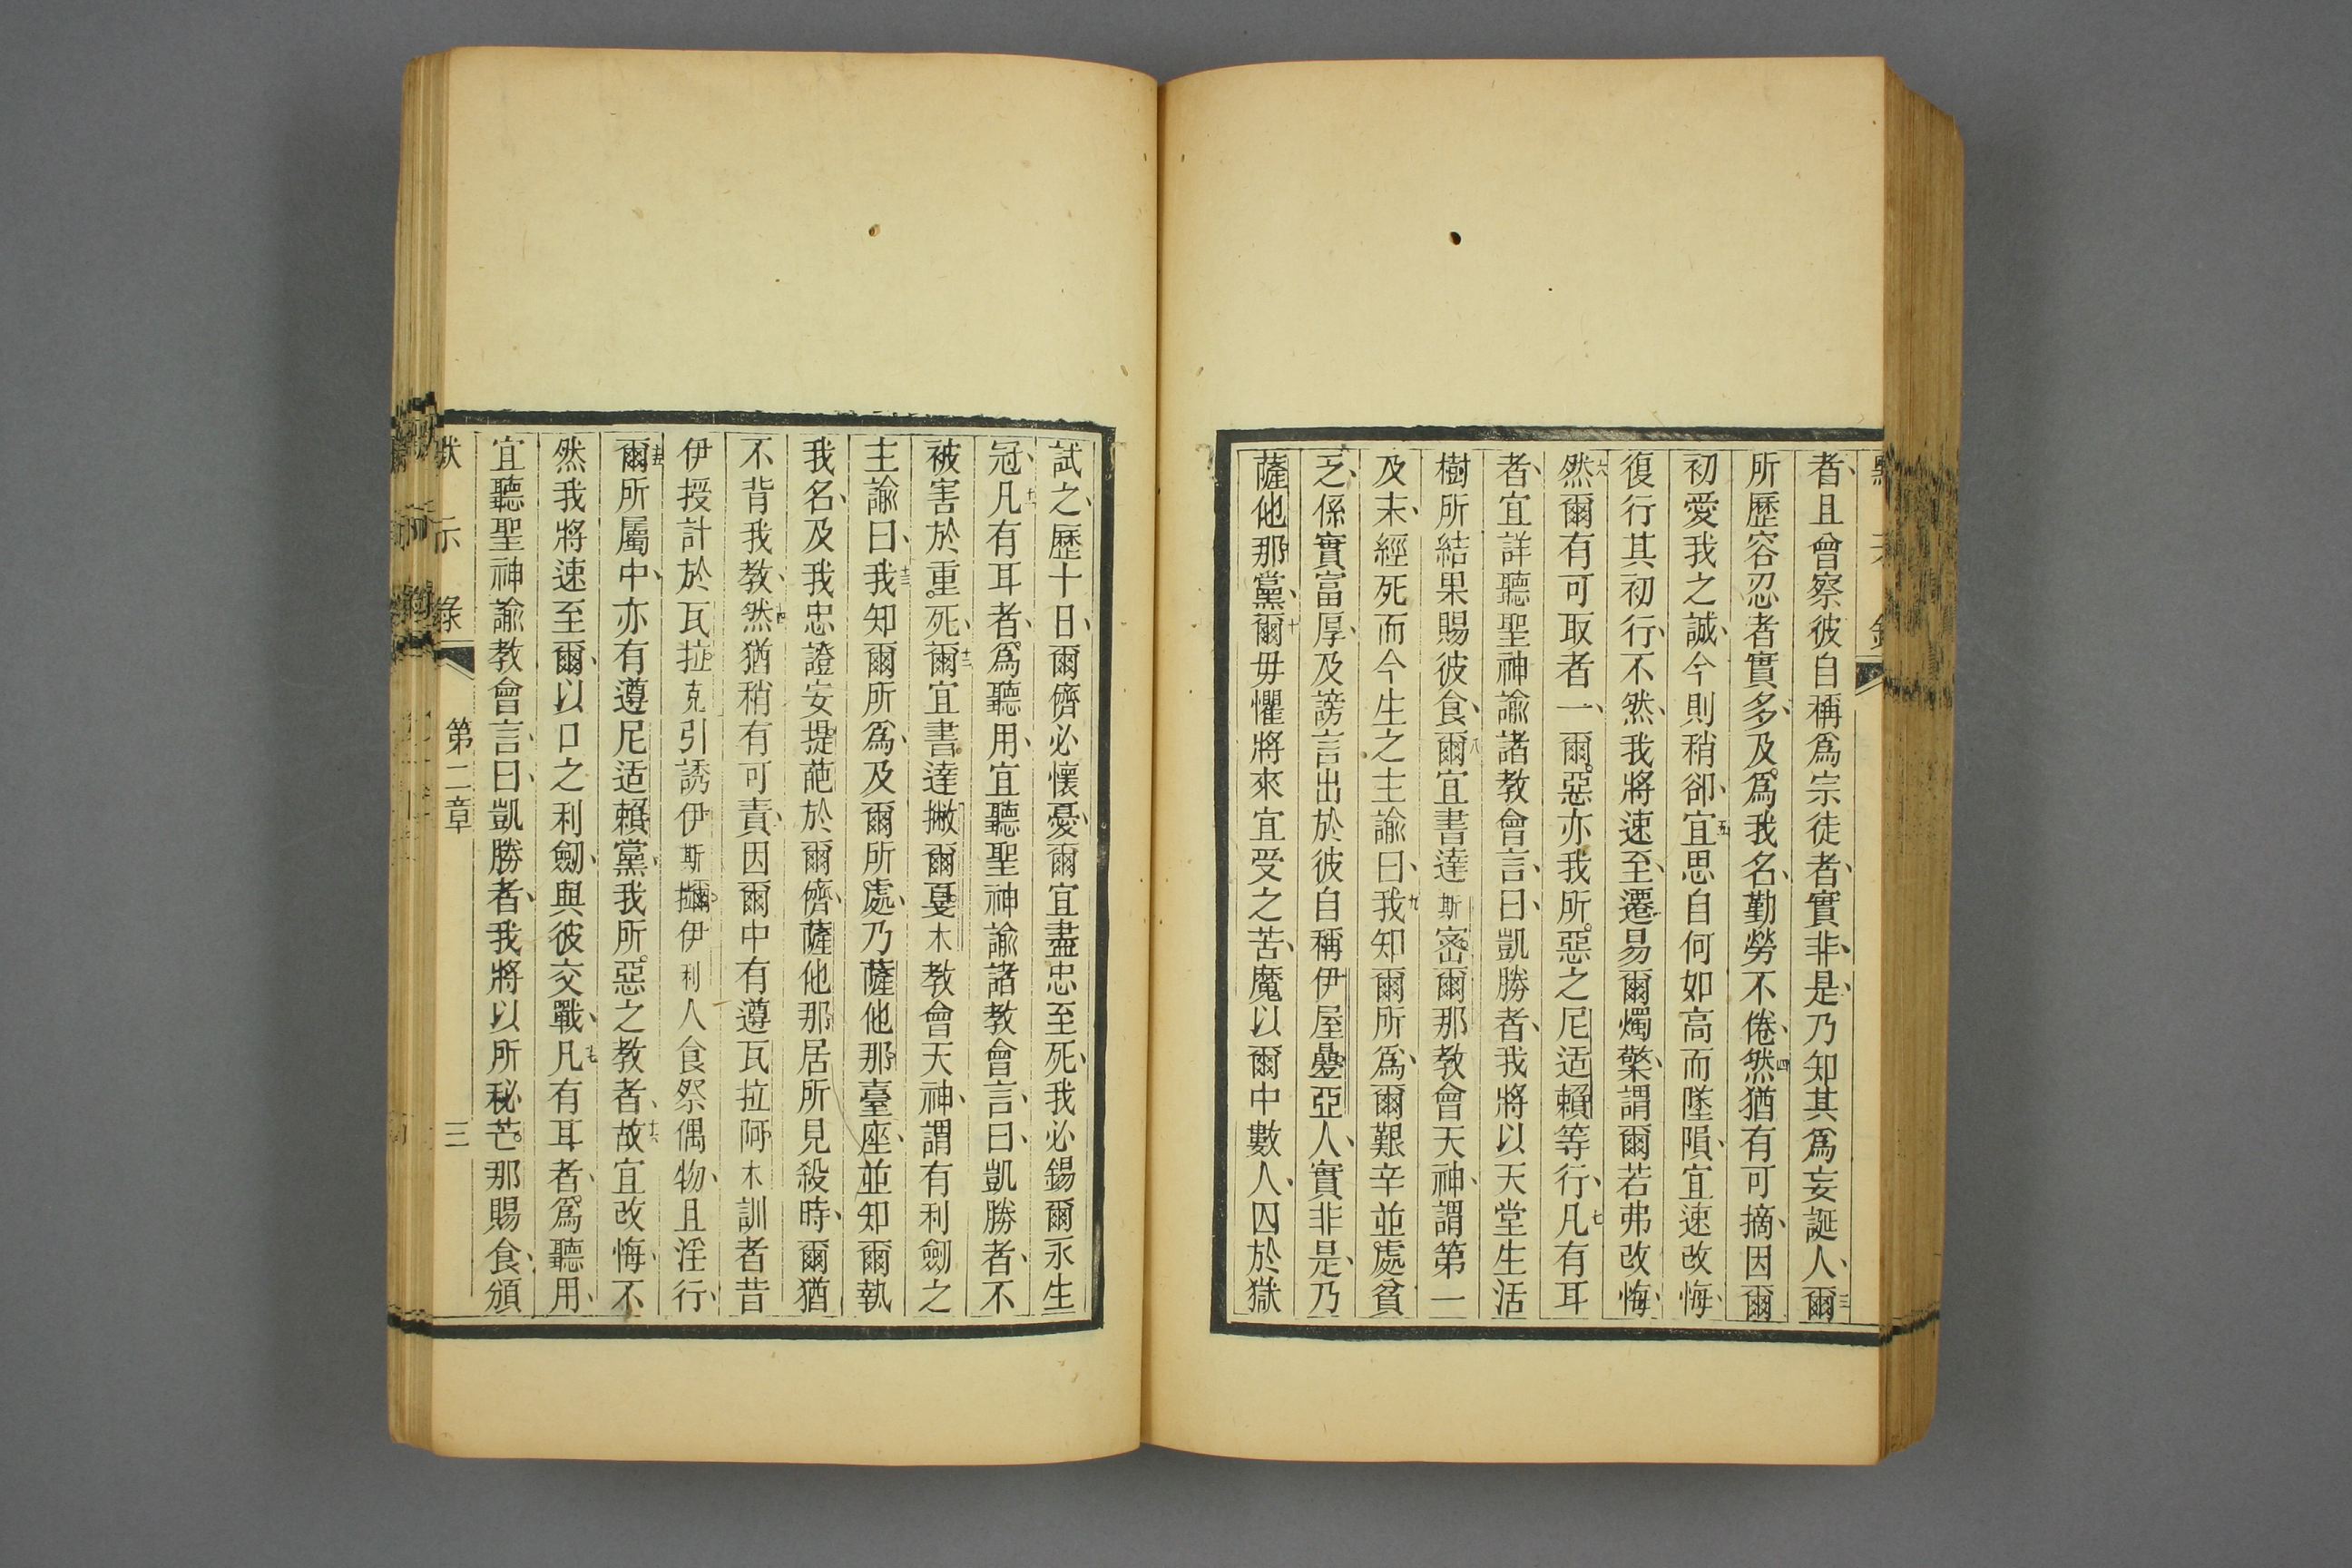 者、且曾察彼自稱爲宗徒者、實非、是、乃知其爲妄誕人、爾三
所歷容忍者實多、及爲我名、勤勞不倦、然四猶有可摘、因爾
初愛我之誠、今則稍卻、宜五思自何如高而墜隕、宜速改悔、
復行其初行、不然、我將速至、遷易爾燭檠、謂爾若弗改悔、
然六爾有可取者一、爾惡亦我所惡之尼适賴等行、凡七有耳
者、宜詳聽聖神諭諸教會言、曰、凱勝者、我將以天堂生活
樹所結果賜彼食、爾八宜書達斯密爾那教會天神、謂第一
及末、經死而今生之主諭曰、我九知爾所爲、爾艱辛並處貧
乏、係實富厚、及謗言出於彼自稱伊屋疊亞人、實非是、乃
薩他那黨、爾十毋懼將來宜受之苦、魔以爾中數人、囚於獄
試之、歷十日、爾儕必懷憂、爾宜盡忠至死、我必錫爾永生
冠、凡十一有耳者、爲聽用、宜聽聖神諭諸教會言、曰、凱勝者、不
被害於重死、爾十二宜書達撇爾戛木教會天神、謂有利劍之
主諭曰、我十三知爾所爲、及爾所處、乃薩他那臺座、並知爾執
我名、及我忠證安提葩於爾儕、薩他那居所見殺時、爾猶
不背我教、然十四猶稍有可責、因爾中有遵瓦拉阿木訓者昔
伊授計於瓦拉克引誘伊斯擱伊利人食祭偶物、且淫行、
爾十五所屬中、亦有遵尼适賴黨、我所惡之教者、故十六宜改悔、不
然我將速至爾、以口之利劒、與彼交戰、凡十七有耳者、爲聽用、
宜聽聖神諭教會言、曰、凱勝者、我將以所秘芒那賜食、頒
默示錄
第二章
三